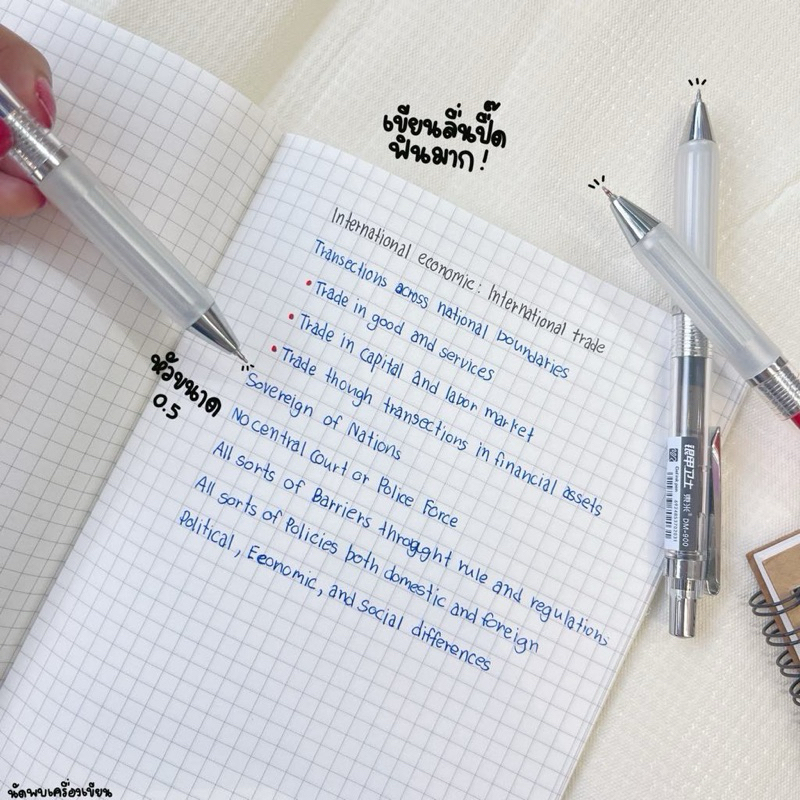 เขียนลื่นปื๊ด
ฟินมาก!
International economic: International trade
Transections across national boundaries
• Trade in good and services
• Trade in Capital and labor market
• Trade though transections in financial assets
Sovereign of Nations
No central Court or Police Force
All sorts of Barriers throgght rule and regulations
All sorts of Policies both domestic and foreign
Political, Eeonomic, and social differences
หัวขนาด
0.5
DM-900
นัดพบเครื่องเขียน